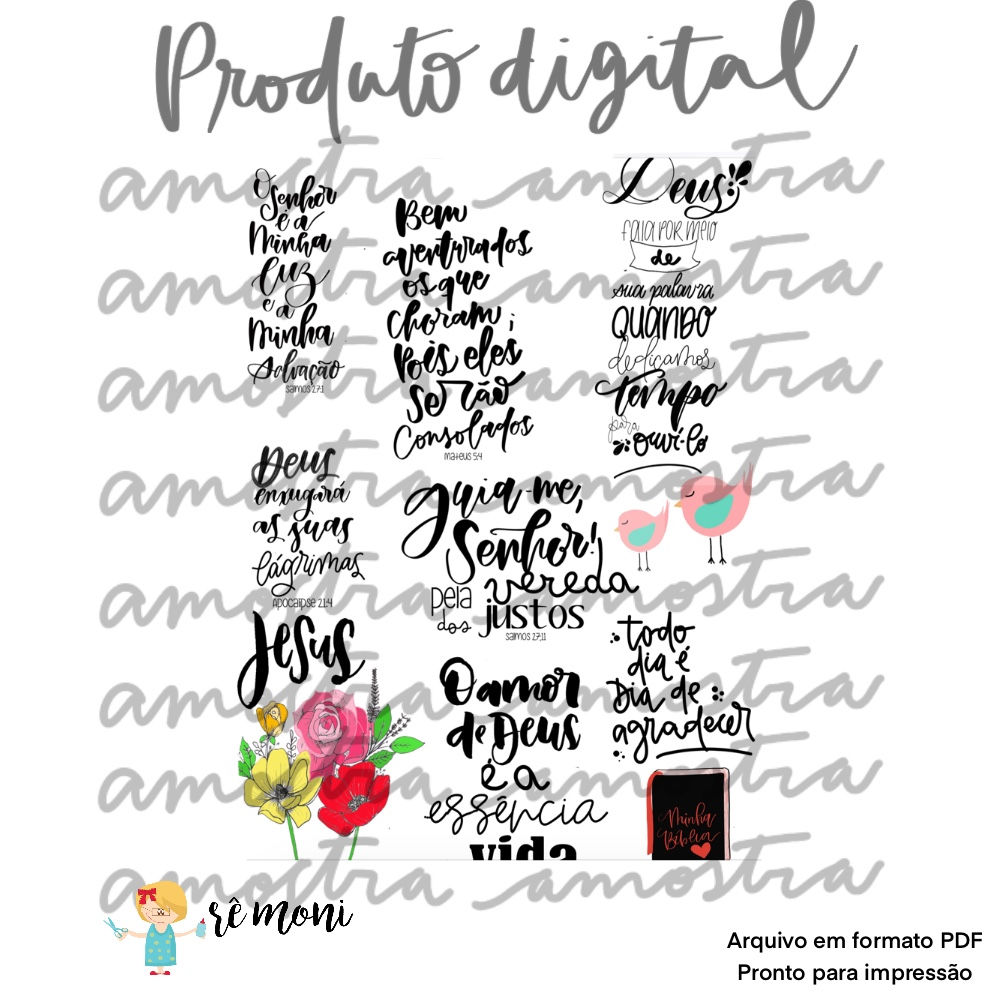 Produto digital
amostra amostra
O
Senhor
é a
Minha
luz
e a
Minha
Salvação
Salmos 27:1
Deus
enxugará
as suas
lágrimas
Apocalipse 21:4
Jesus
Bem
aventurados
os que
choram;
Pois eles
Serão
Consolados
Mateus 5:4
Guia-me,
Senhor!
pela vereda
dos justos
Salmos 27:11
O amor
de Deus
é a
essência
vida
Deus
fala por meio
de
sua palavra
QUANDO
dedicamos
tempo
para
ouvi-lo
todo
dia é
Dia de
agradecer
Minha
Bíblia
amostra amostra
amostra amostra
amostra amostra
amostra amostra
amostra amostra
amostra amostra
amostra amostra
rê moni
Arquivo em formato PDF
Pronto para impressão